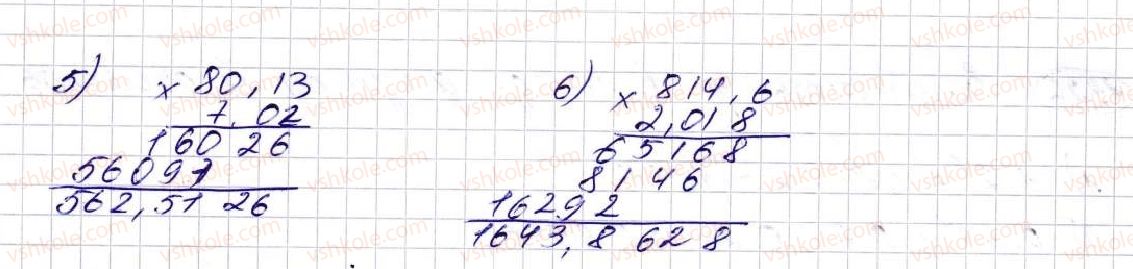 5) × 80,13
7,02
160 26
56091
562,51 26
6) × 814,6
2,018
65168
8146
16292
1643,8 628